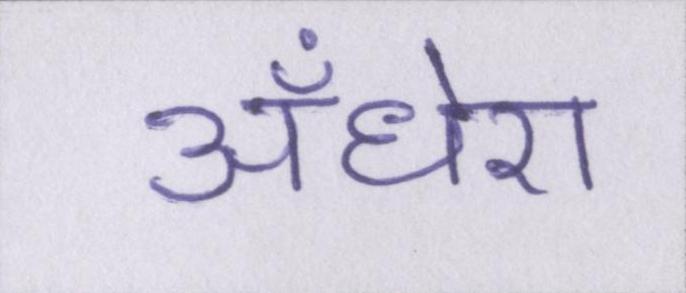 अँधेरा